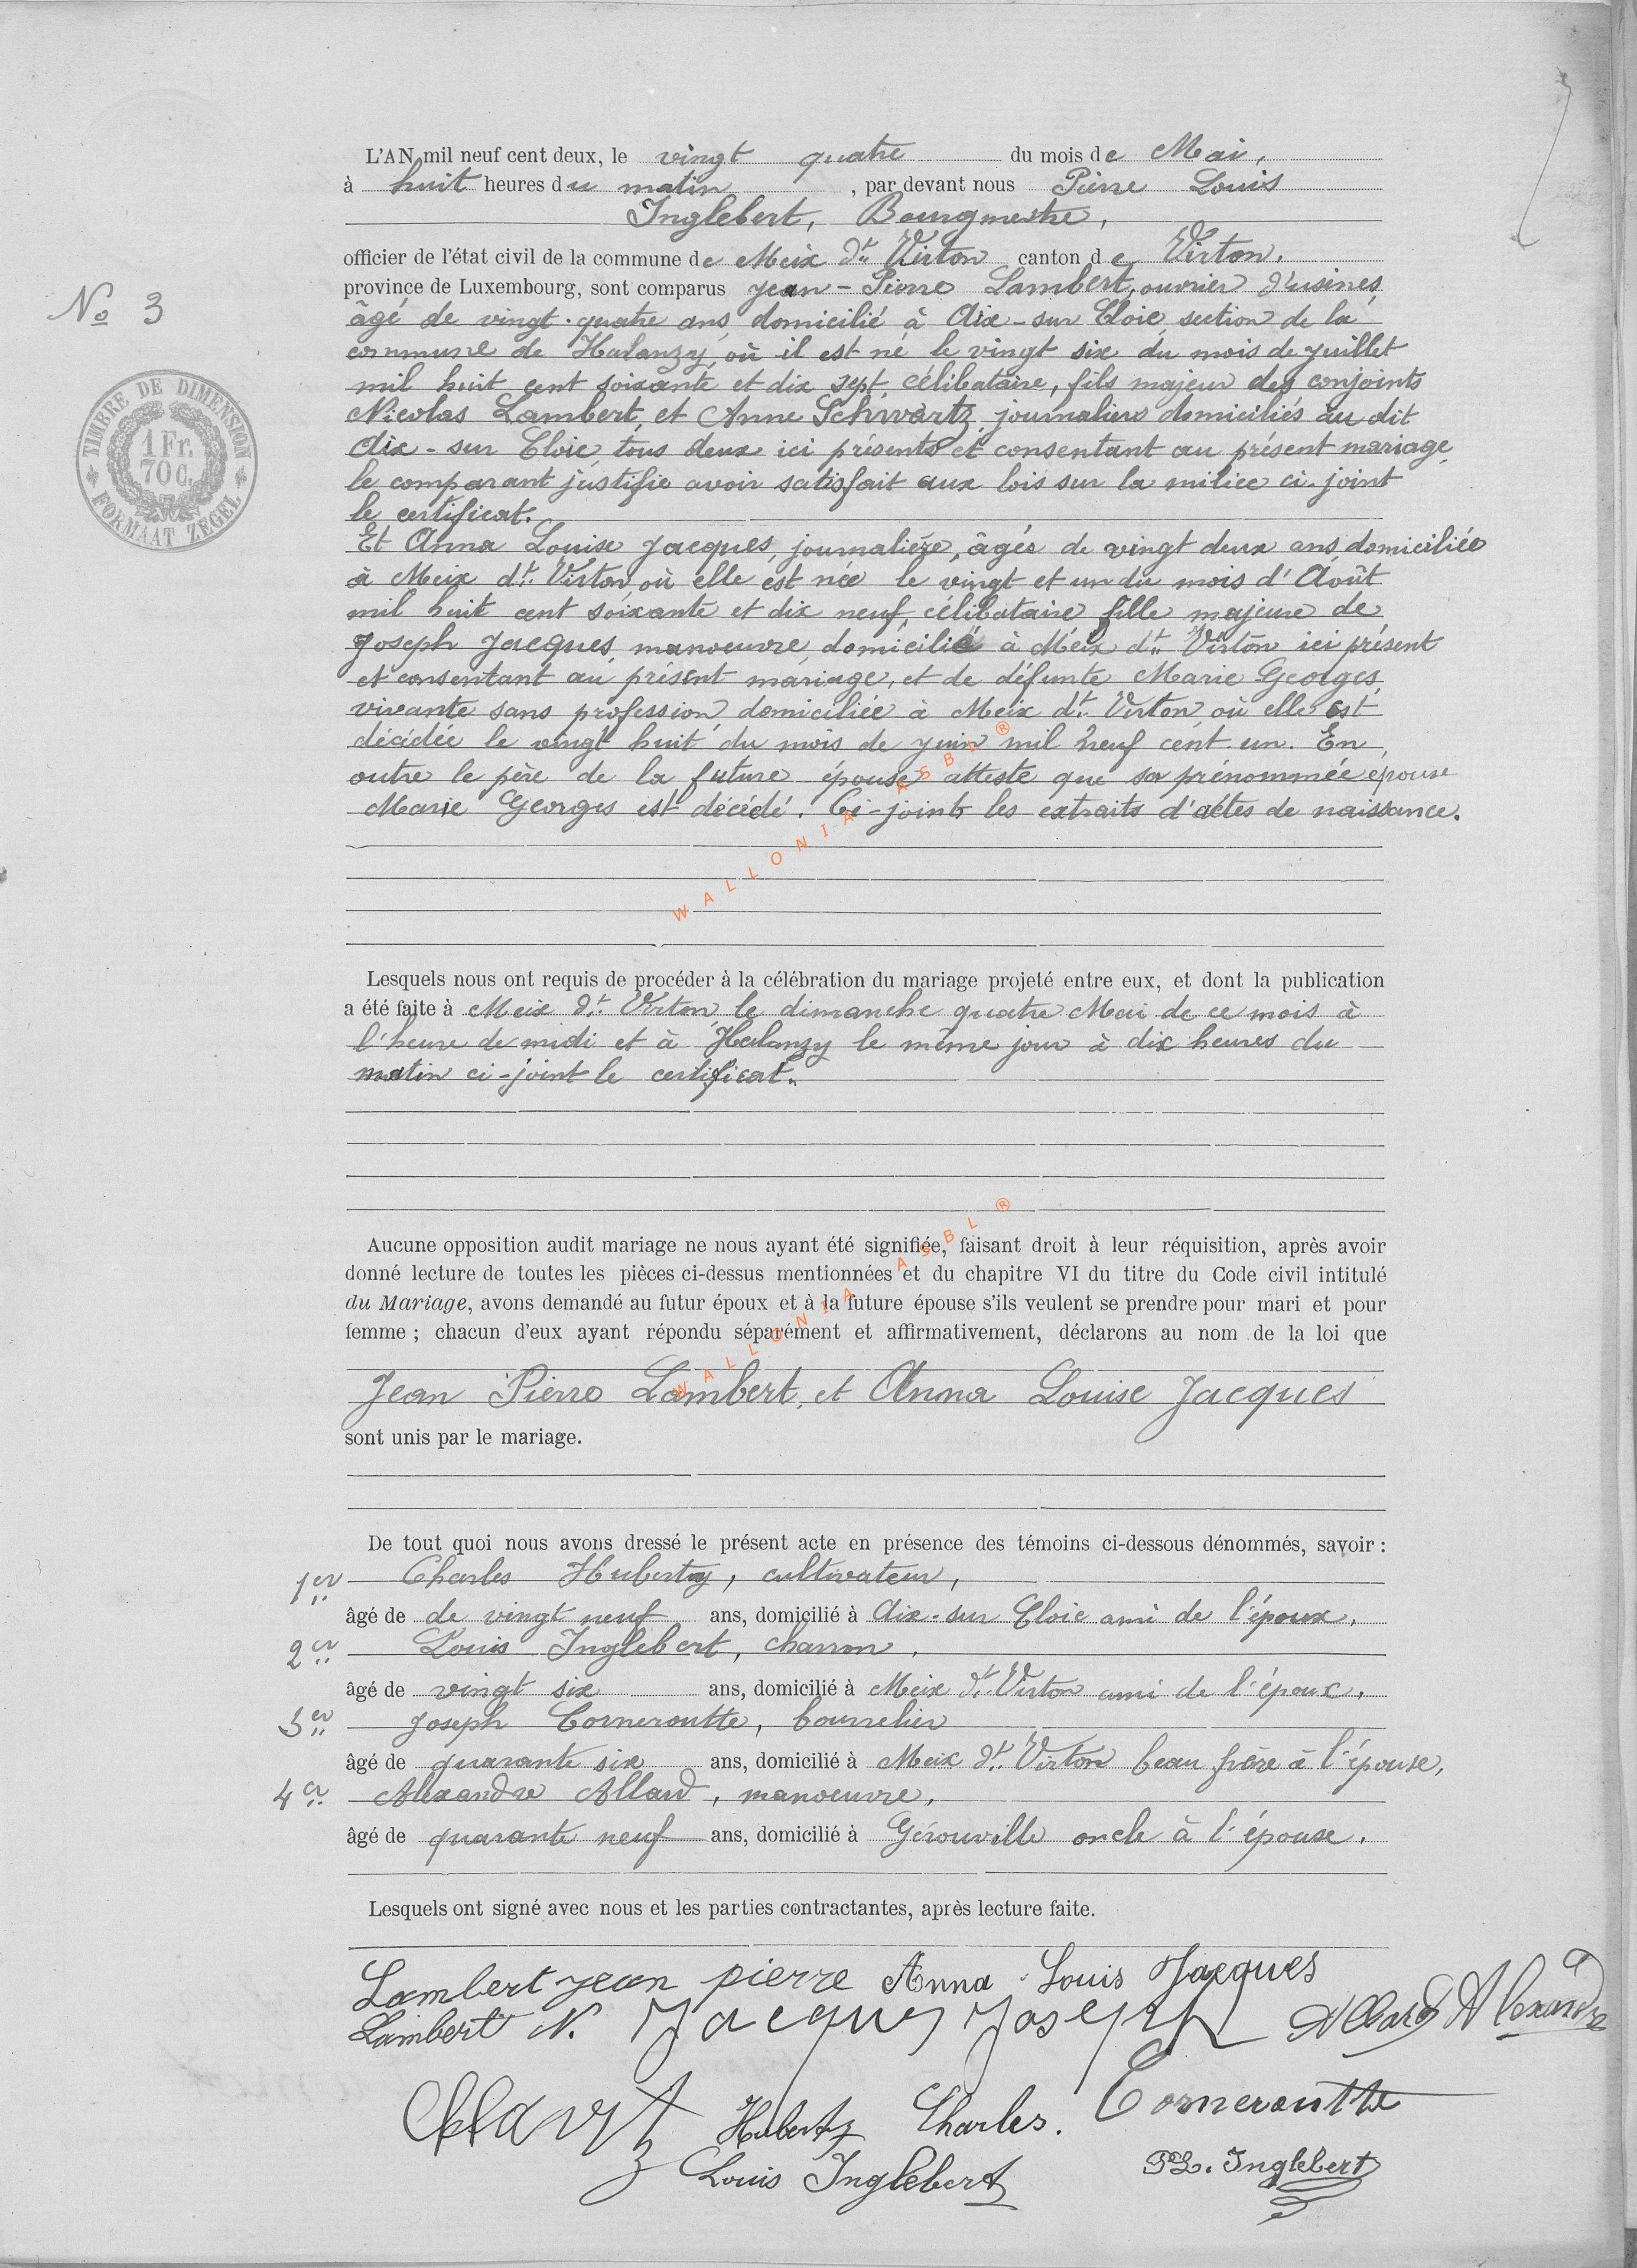 L'AN mil neuf cent deux, le vingt quatre du mois de Mai,
à huit heures du matin, par devant nous Pierre Louis
Inglebert, Bourgmestre,
officier de l'état civil de la commune de Meix dt Virton canton de Virton.
province de Luxembourg, sont comparus Jean-Pierre Lambert, ouvrier d'usines,
No 3
âgé de vingt-quatre ans, domicilié à Aix-sur Cloie, section de la
commune de Halanzy, où il est né le vingt six du mois de juillet
mil huit cent soixante et dix sept, célibataire, fils majeur des conjoints
TIMBRE DE DIMENSION
1 Fr.
70 C.
FORMAAT ZEGEL
Nicolas Lambert, et Anne Schwartz, journaliers domiciliés au dit
Aix-sur Cloie, tous deux ici présents et consentant au présent mariage,
le comparant justifie avoir satisfait aux lois sur la milice ci-joint
le certificat.
Et Anna Louise Jacques, journalière, âgée de vingt deux ans, domiciliée
à Meix dt Virton, où elle est née le vingt et un du mois d'Août
mil huit cent soixante et dix neuf, célibataire, fille majeure de
Joseph Jacques, manoeuvre, domicilié à Meix dt Virton ici présent
et consentant au présent mariage, et de défunte Marie Georges,
vivante sans profession, domiciliée à Meix dt Virton, où elle est
décédée le vingt huit du mois de juin mil neuf cent un. En
outre le père de la future épouse atteste que sa prénommée épouse
Marie Georges est décédé. Ci-joints les extraits d'actes de naissance.
WALLONIA ASBL ®
Lesquels nous ont requis de procéder à la célébration du mariage projeté entre eux, et dont la publication
a été faite à Meix dt Virton, le dimanche quatre Mai de ce mois à
l'heure de midi et à Halanzy le même jour à dix heures du
matin ci-joint le certificat.
Aucune opposition audit mariage ne nous ayant été signifiée, faisant droit à leur réquisition, après avoir
donné lecture de toutes les pièces ci-dessus mentionnées et du chapitre VI du titre du Code civil intitulé
du Mariage, avons demandé au futur époux et à la future épouse s'ils veulent se prendre pour mari et pour
femme ; chacun d'eux ayant répondu séparément et affirmativement, déclarons au nom de la loi que
WALLONIA ASBL ®
Jean Pierre Lambert, et Anna Louise Jacques
sont unis par le mariage.
De tout quoi nous avons dressé le présent acte en présence des témoins ci-dessous dénommés, savoir :
1er Charles Huberty, cultivateur,
âgé de de vingt neuf ans, domicilié à Aix-sur Cloie ami de l'époux.
2er Louis Inglebert, charron,
âgé de vingt six ans, domicilié à Meix dt Virton ami de l'époux.
3er Joseph Corneroutte, bourrelier
âgé de quarante six ans, domicilié à Meix dt Virton beau frère à l'épouse,
4er Alexandre Allard, manoeuvre,
âgé de quarante neuf ans, domicilié à Gérouville oncle à l'épouse.
Lesquels ont signé avec nous et les parties contractantes, après lecture faite.
Lambert jean pierre Anna Louis Jacques
Lambert N. Jacques Joseph Allard Alexandre
Huberty Charles. Corneroutte
Louis Inglebert PL. Inglebert